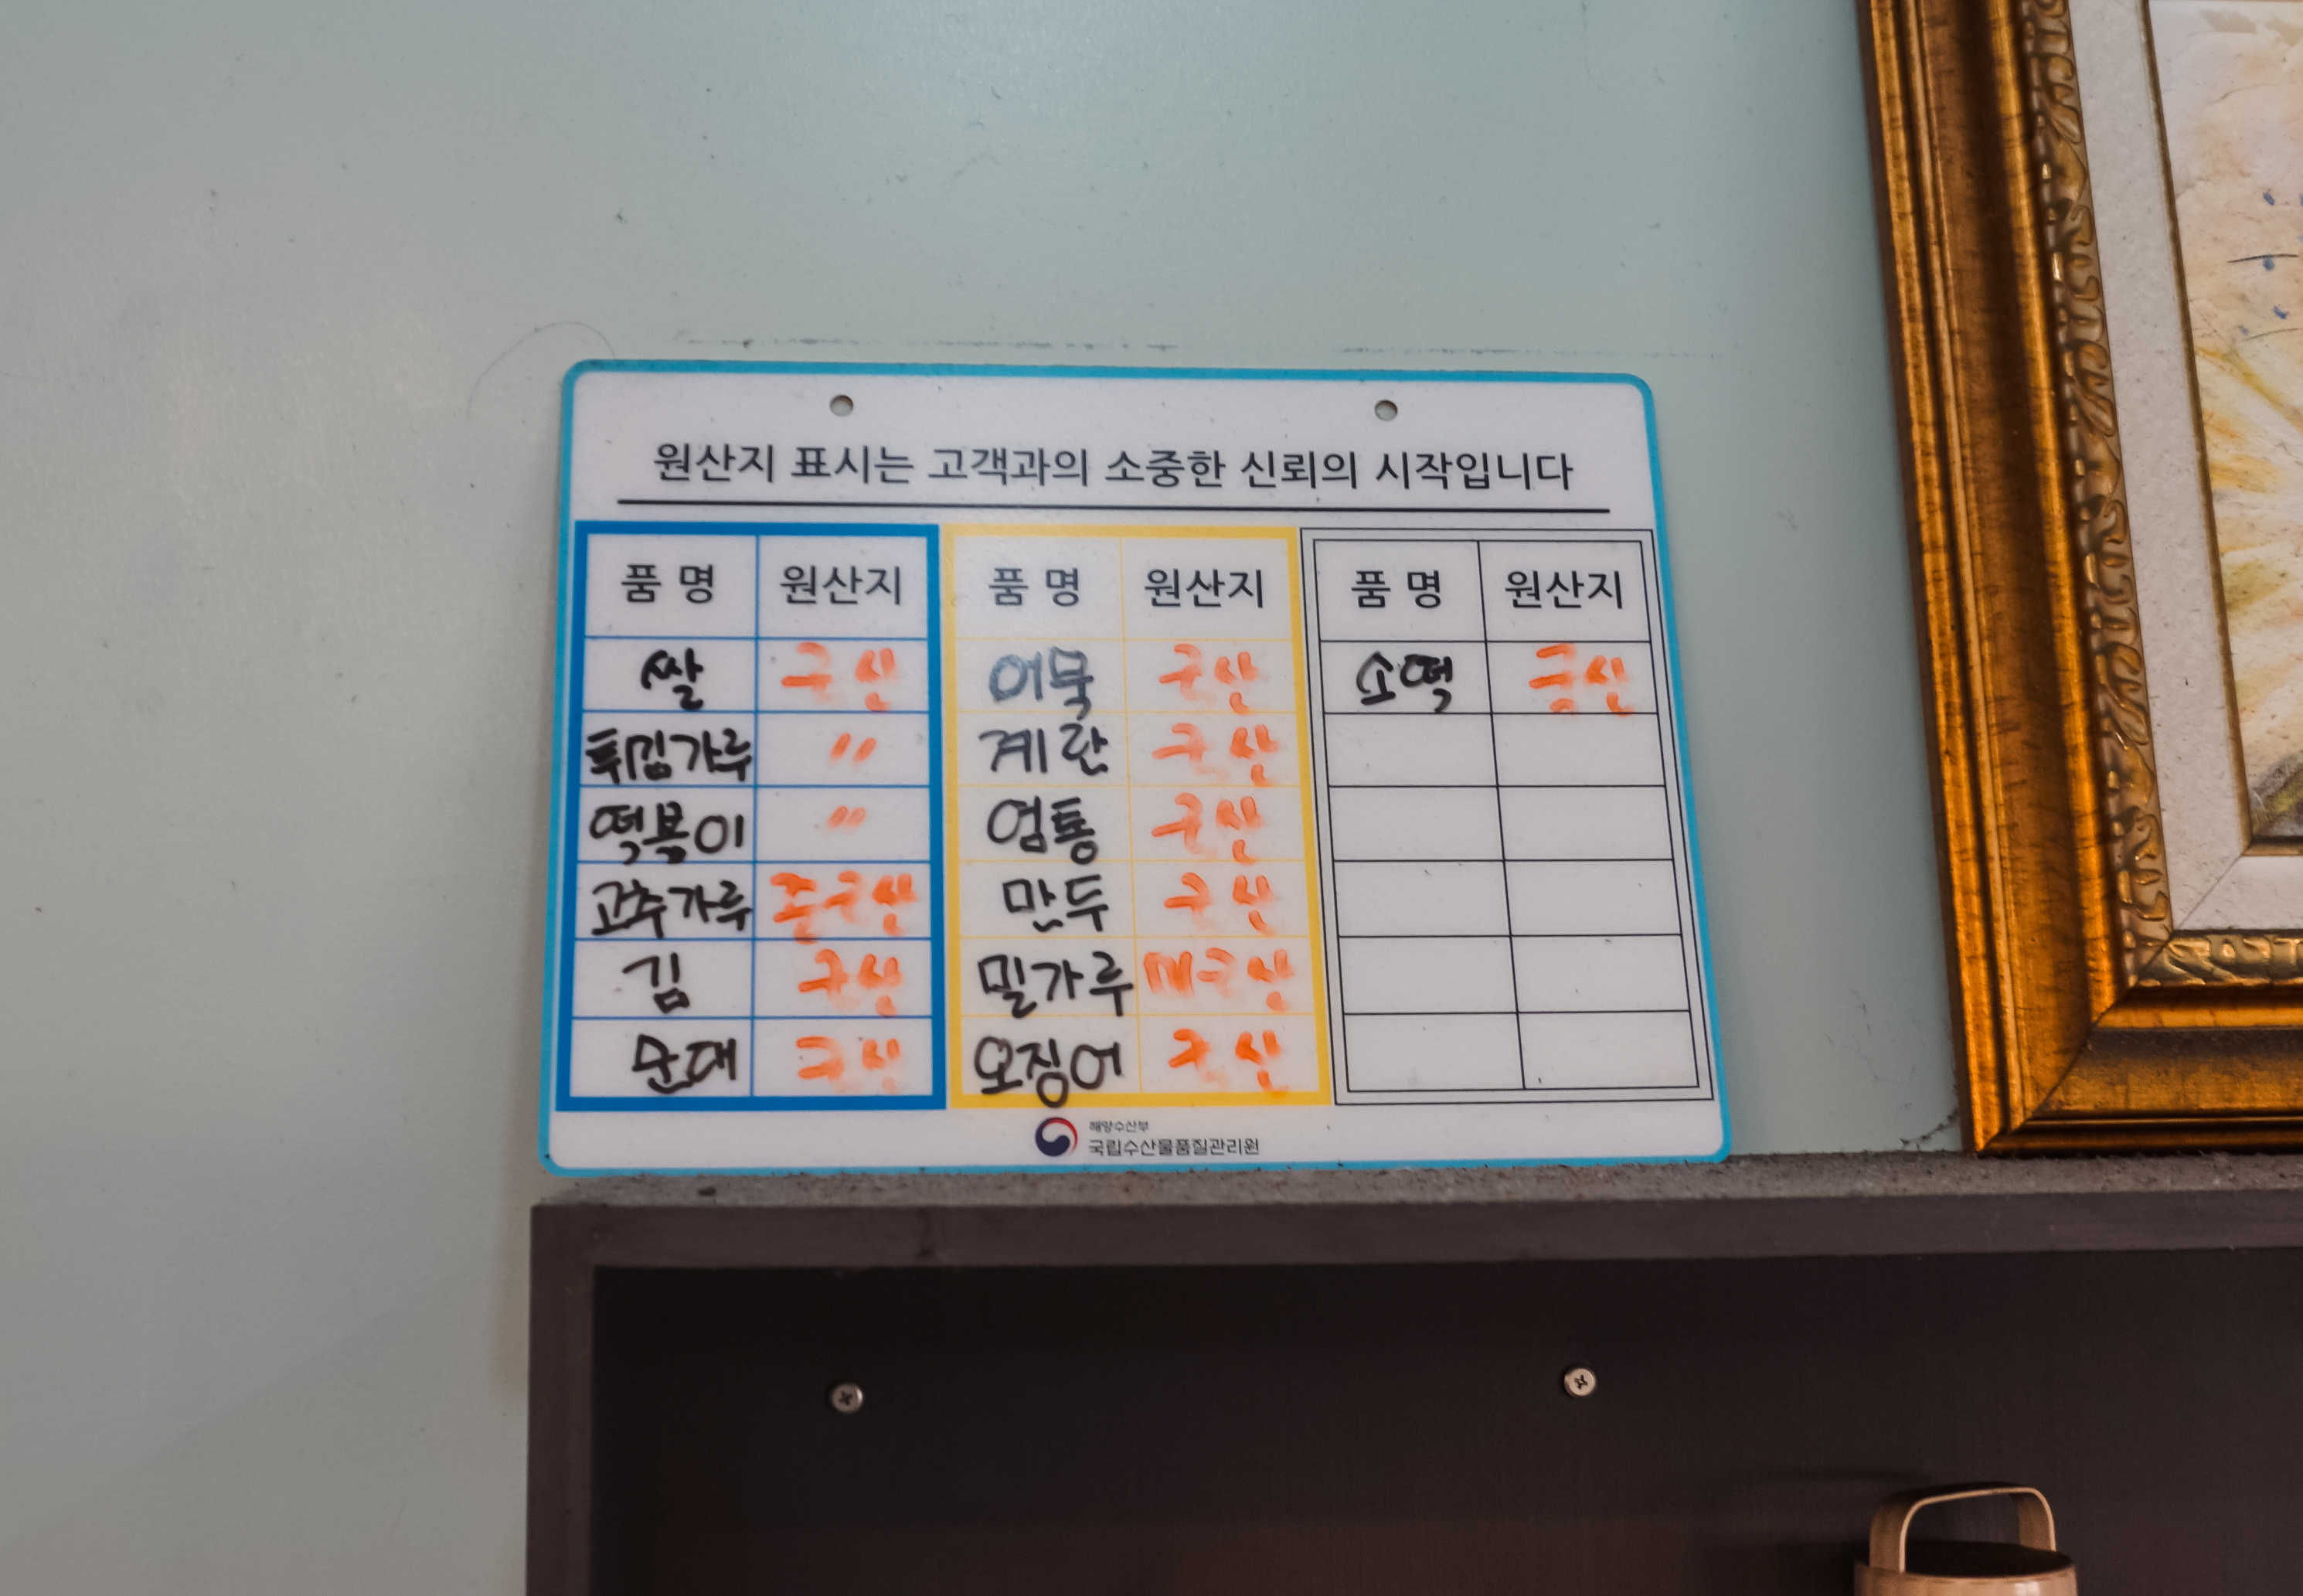 원산지 표시는 고객과의 소중한 신뢰의 시작입니다
품명 원산지 품명 원산지 품명 원산지
쌀 국산 어묵 국산 소떡 국산
튀김가루 〃 계란 국산
떡볶이 〃 염통 국산
고춧가루 중국산 만두 국산
김 국산 밀가루 미국산
순대 국산 오징어 국산
해양수산부
국립수산물품질관리원